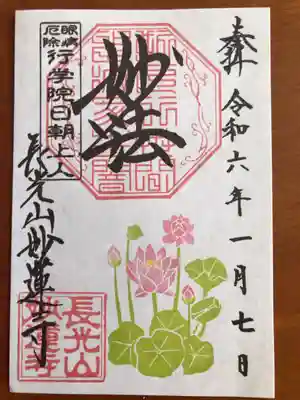 奉拝
令和六年一月七日
妙法
眼病
厄除
行学院日朝上人
長光山妙蓮寺
長光山
妙蓮寺